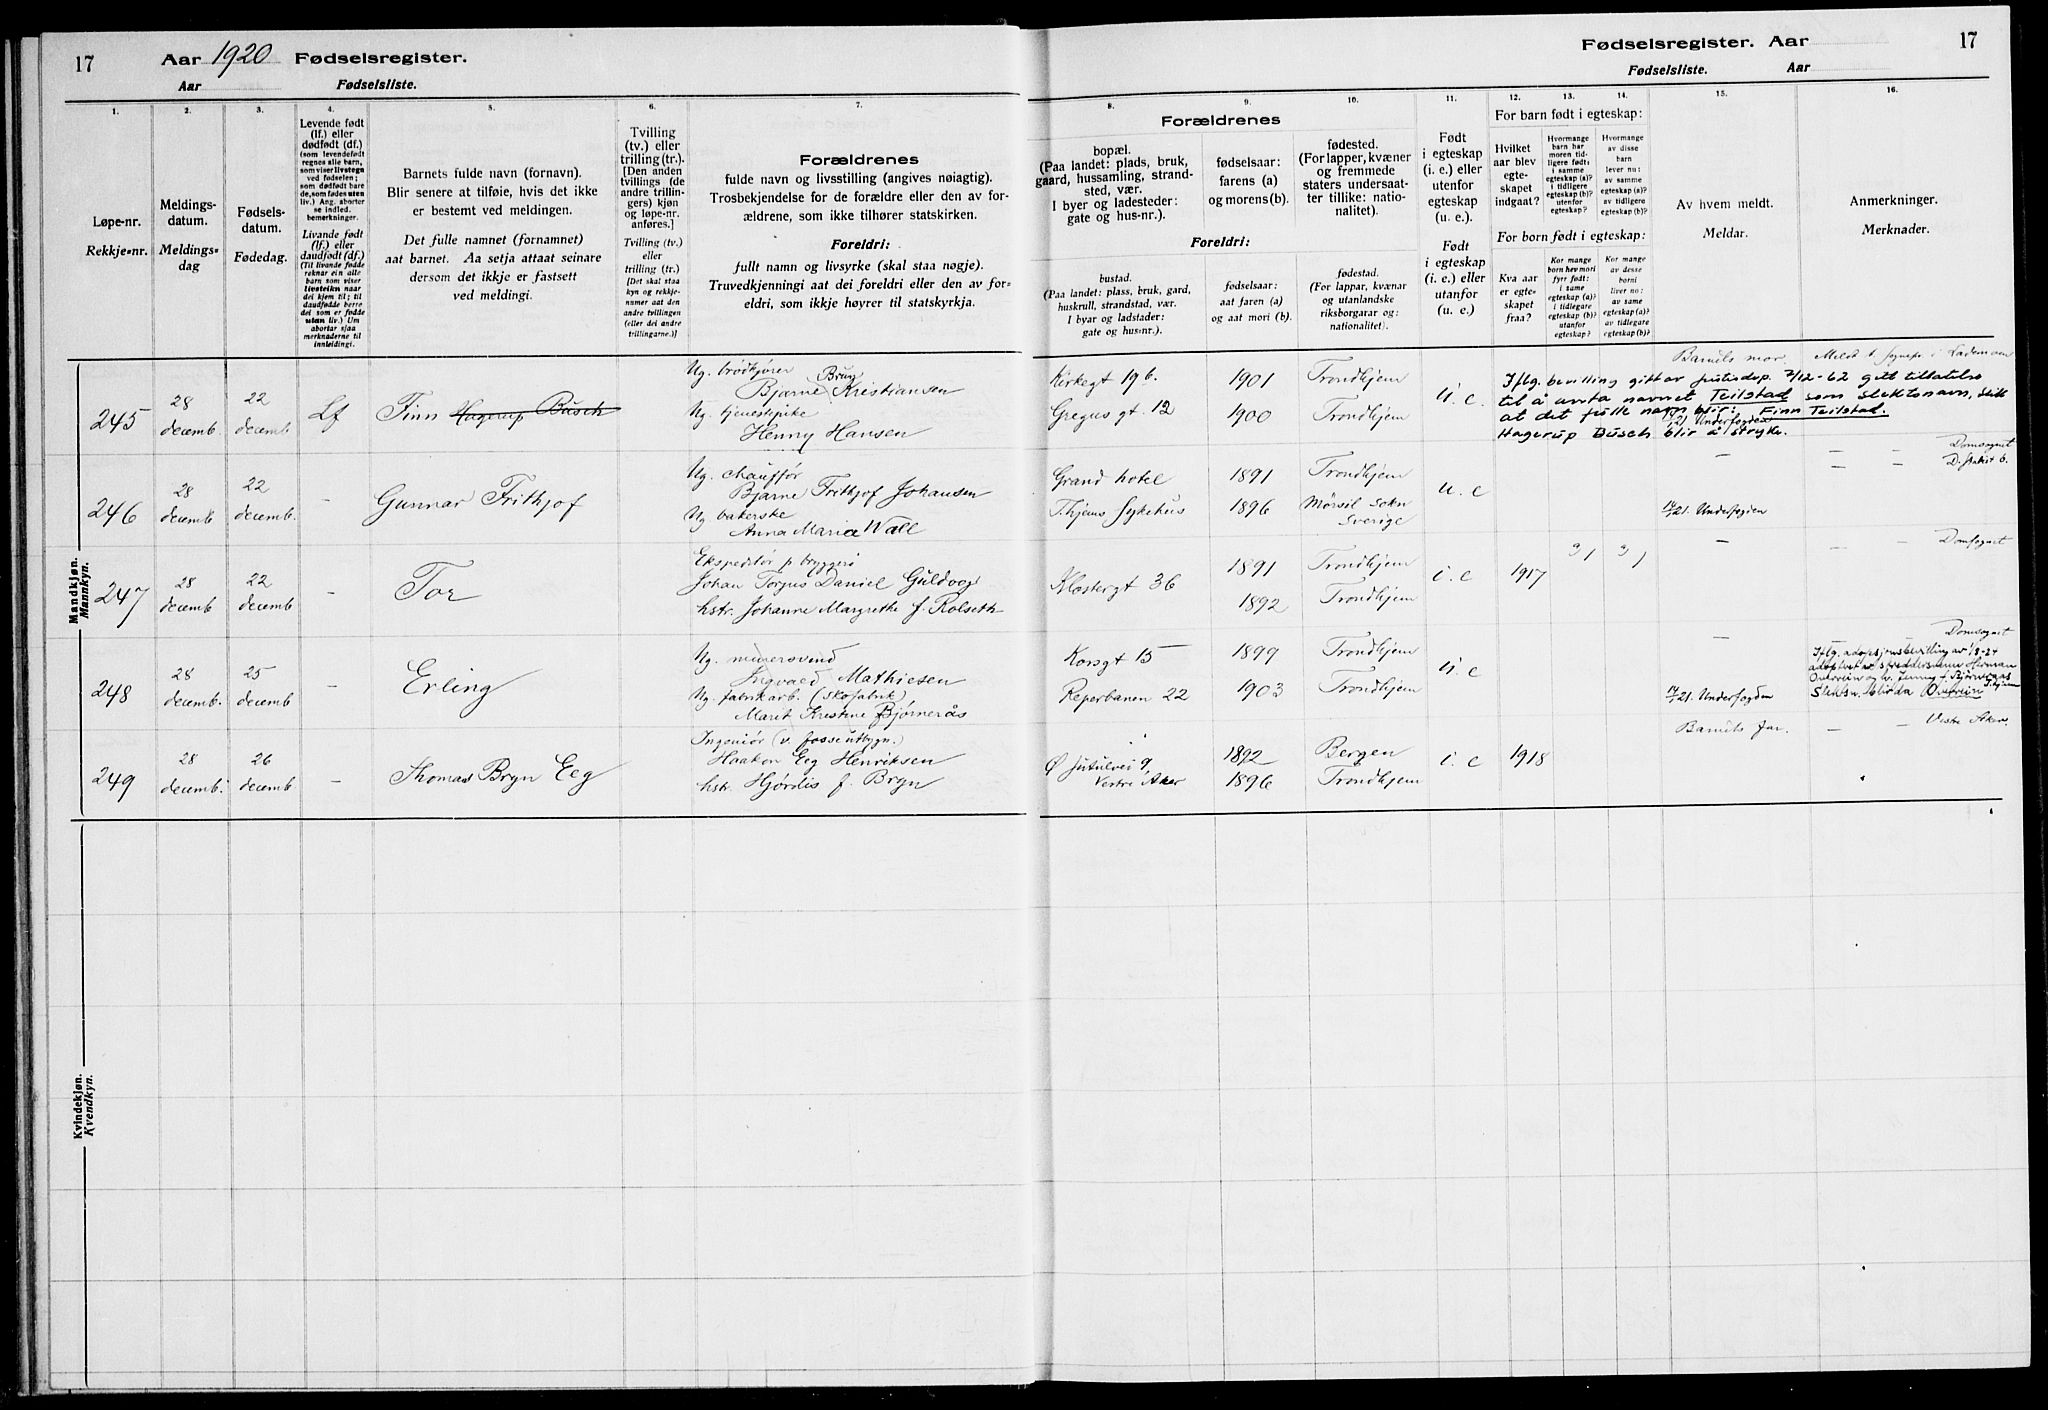 17
Aar 1920 Fødselsregister.
Aar Fødselsliste.
1.
2.
3.
4.
5.
6.
7.
Løpe-nr.
Rekkje-nr.
Meldings-
datum.
Meldings-
dag
Fødsels-
datum.
Fødedag.
Levende født
(lf.) eller
dødfødt (df.)
(som levendefødt
regnes alle barn,
som viser livstegn
ved fødselen;
som dødfødt bare
de, som fødes uten
liv.) Ang. aborter
se indled.
bemerkninger.
Livande født
(lf.) eller
daudfødt (df.)
(Til livande fødde
reknar ein alle
barn som viser
livsteikn naar
dei kjem til; til
daudfødde berre
dei som er fødde
utan liv.) Um
abortar sjaa
merknaderne til
innleidingi.
Barnets fulde navn (fornavn).
Blir senere at tilføie, hvis det ikke
er bestemt ved meldingen.
Det fulle namnet (fornamnet)
aat barnet. Aa setja attaat seinare
dersom det ikkje er fastsett
ved meldingi.
Tvilling
(tv.) eller
trilling (tr.).
[Den anden
tvillings (de
andre trillin-
gers) kjøn
og løpe-nr.
anføres.]
Tvilling (tv.)
eller
trilling (tr.)
[Det skal staa
kyn og rekkje-
nummer aat den
andre tvillingen
(eller dei andre
trillingarne.)]
Forældrenes
fulde navn og livsstilling (angives nøiagtig).
Trosbekjendelse for de forældre eller den av for-
ældrene, som ikke tilhører statskirken.
Foreldri:
fullt namn og livsyrke (skal staa nøgje).
Truvedkjenningi aat dei foreldri eller den av for-
eldri, som ikkje høyrer til statskyrkja.
Mandkjøn.
Mannkyn.
245
28
decemb.
22
decemb
Lf
Finn Hagerup Busch
Ug. brødkjører Brun
Bjarne Kristiansen
Ug. tjenestepike
Henny Hansen
246
28
decemb
22
decemb.
–
Gunnar Frithjof
Ug. chauffør
Bjarne Frithjof Johansen
Ug bakerske
Anna Maria Wall
247
28
decemb
22
decemb
–
Tor
Ekspeditør p bryggeri
Johan Torgus Daniel Guldvog
hstr. Johanne Margrethe f. Rolseth
248
28
decemb.
25
decemb.
–
Erling
Ug. murersvend
Ingvald Mathiesen
Ug. fabrikarb. (skofabrik)
Marit Kristine Bjørnerås
249
28
decemb.
26
decemb
–
Thomas Bryn Eeg
Ingeniør (v. fosseutbygn.)
Haakon Eeg Henriksen
hstr. Hjørdis f. Bryn
Kvindekjøn.
Kvendkyn.
Fødselsregister. Aar 17
Fødselsliste. Aar
8.
9.
10.
11.
12.
13.
14.
15.
16.
Forældrenes
bopæl.
(Paa landet: plads, bruk,
gaard, hussamling, strand-
sted, vær.
I byer og ladesteder:
gate og hus-nr.).
fødselsaar:
farens (a)
og morens (b).
fødested.
(For lapper, kvæner
og fremmede
staters undersaat-
ter tillike: natio-
nalitet).
Foreldri:
bustad.
(Paa landet: plass, bruk, gard,
huskrull, strandstad, vær.
I byar og ladstader:
gate og hus-nr.).
fødselsaar:
aat faren (a)
og aat mori (b).
fødestad.
(For lappar, kvænar
og utanlandske
riksborgarar og:
nationalitet).
Født
i egteskap
(i. e.) eller
utenfor
egteskap
(u. e.).
Født
i egteskap
(i. e.) eller
utanfor
egteskap
(u. e.).
For barn født i egteskap:
Hvilket
aar blev
egte-
skapet
indgaat?
Hvormange
barn har
moren tid-
ligere født:
i samme
egteskap (a)?
i tidligere
egteskap (b)?
utenfor
egteskap?
Hvormange
av disse
barn
lever nu:
av samme
egteskap (a)?
av tidligere
egteskap (b)?
For born født i egteskap:
Kva aar
er egte-
skapet
fraa?
Kor mange
born hev mori
fyrr født:
i same
egteskap (a)?
i tidlegare
egteskap (b)?
utanfor
egteskap?
Kor mange
av desse
borni
liver no:
av same
egteskap (a)?
av tidlegare
egteskap (b)?
Av hvem meldt.
Meldar.
Anmerkninger.
Merknader.
Kirkegt 19 b.
Gregus gt. 12
1901
1900
Trondhjem
Trondhjem
u. e.
Barnets mor.
Iflg. bevilling gitt av Justisdep. 7/12-62 gitt tillatelse
til å anta navnet Teilstad som slektsnavn, slik
at det fulle navn blir: Finn Teilstad.
Underfogden
Hagerup Busch blir å stryke.
Grand hotel
T.hjems sykehus
1891
1896
Trondhjem
Mørsil sokn
Sverige
u. e
–
21. Underfogden
Domsognet
Klostergt 36
1891
1892
Trondhjem
Trondhjem
i. e
1917
3 1
3 1
–
– – Domsognet
Korsgt 15
Reperbanen 22
1899
1903
Trondhjem
Trondhjem
u. e
–
21. Underfogden
Domsognet
Iflg. adopsjonsbevilling av
Herman
Overrein
Ø Jutulvei 9
Vestre Aker
1892
1896
Bergen
Trondhjem
i. e
1918
Barnets far.
– – Vestre Aker.